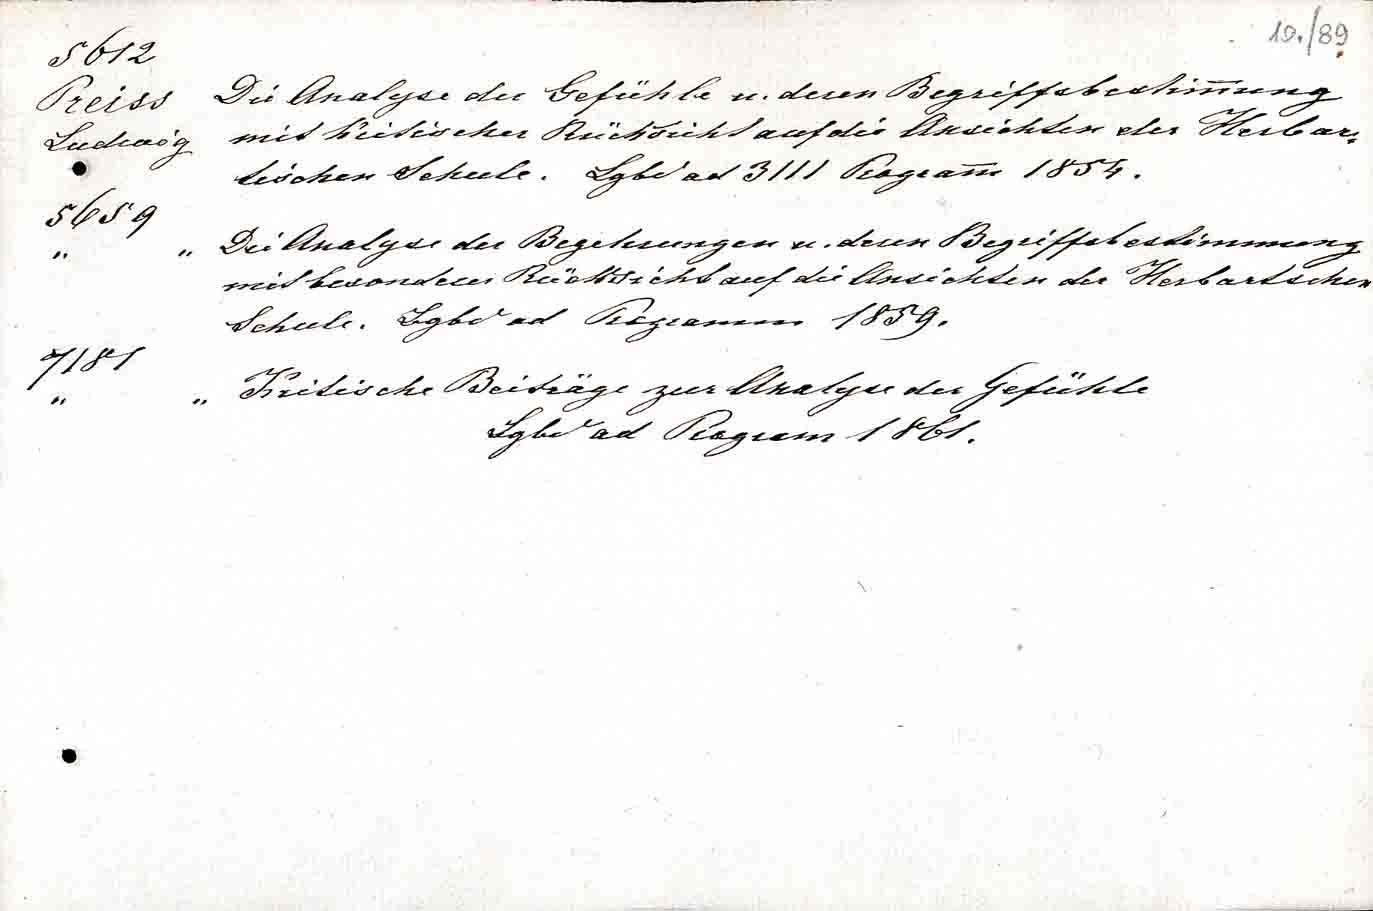 10./89
5612
Preiss Die Analyse der Gefühle u. deren Begriffsbestim̅ung
Ludwig mit kritischer Rücksicht auf die Ansichten der Herbar-
tischen Schule. Lgbd ad 3111 Program̅ 1854.
5659
" " Die Analyse der Begehrungen u. deren Begriffsbestimmung
mit besonderer Rücksicht auf die Ansichten der Herbartschen
Schule. Lgbd ad Programm 1859.
7181
" " Kritische Beiträge zur Analyse der Gefühle
Lgbd ad Program 1861.